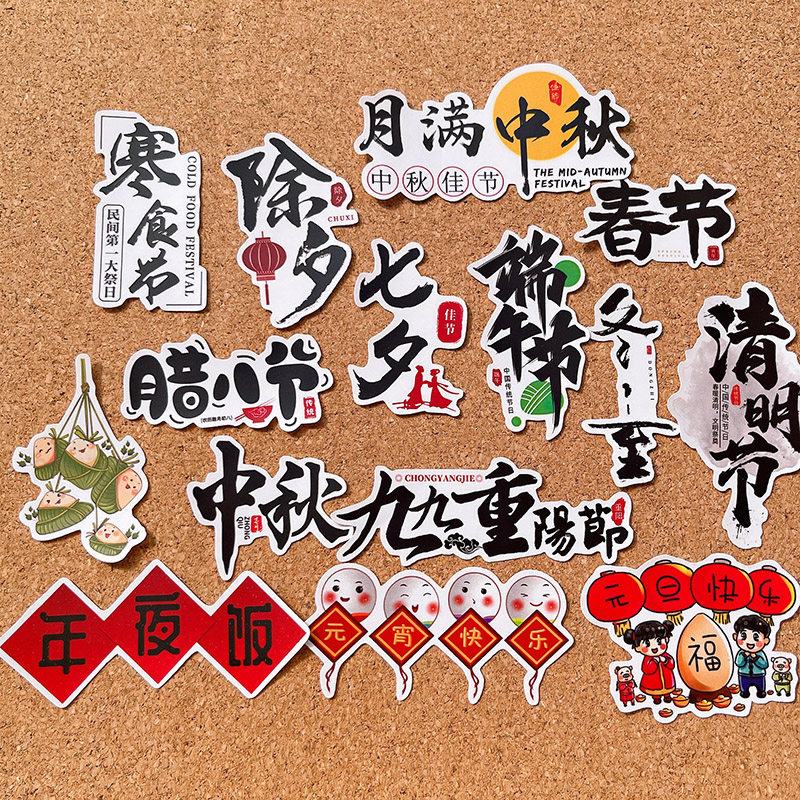 寒食节
COLD FOOD FESTIVAL
民间第一大祭日
除夕
除夕
CHUXI
月满中秋
中秋佳节
THE MID-AUTUMN
FESTIVAL
春节
七夕
佳节
端午节
端午
中国传统节日
冬至
DONGZHI
清明节
中国传统节日
腊八节
传统
中秋
ZHONG
QIU
CHONGYANGJIE
九九重陽節
重阳
年夜饭
元宵快乐
元旦快乐
福